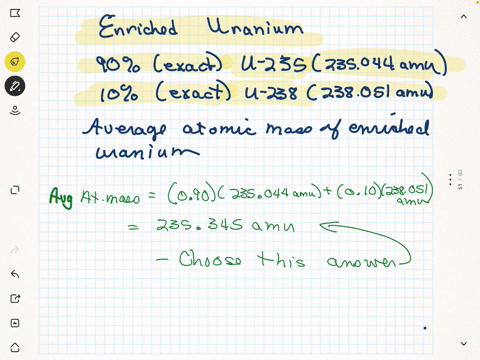 Enriched Uranium
90% (exact) U-235 (235.044 amu)
10% (exact) U-238 (238.051 amu)
Average atomic mass of enriched
uranium
Avg At. mass = (0.90)(235.044 amu) + (0.10)(238.051
amu)
= 235.345 amu
- Choose this answer